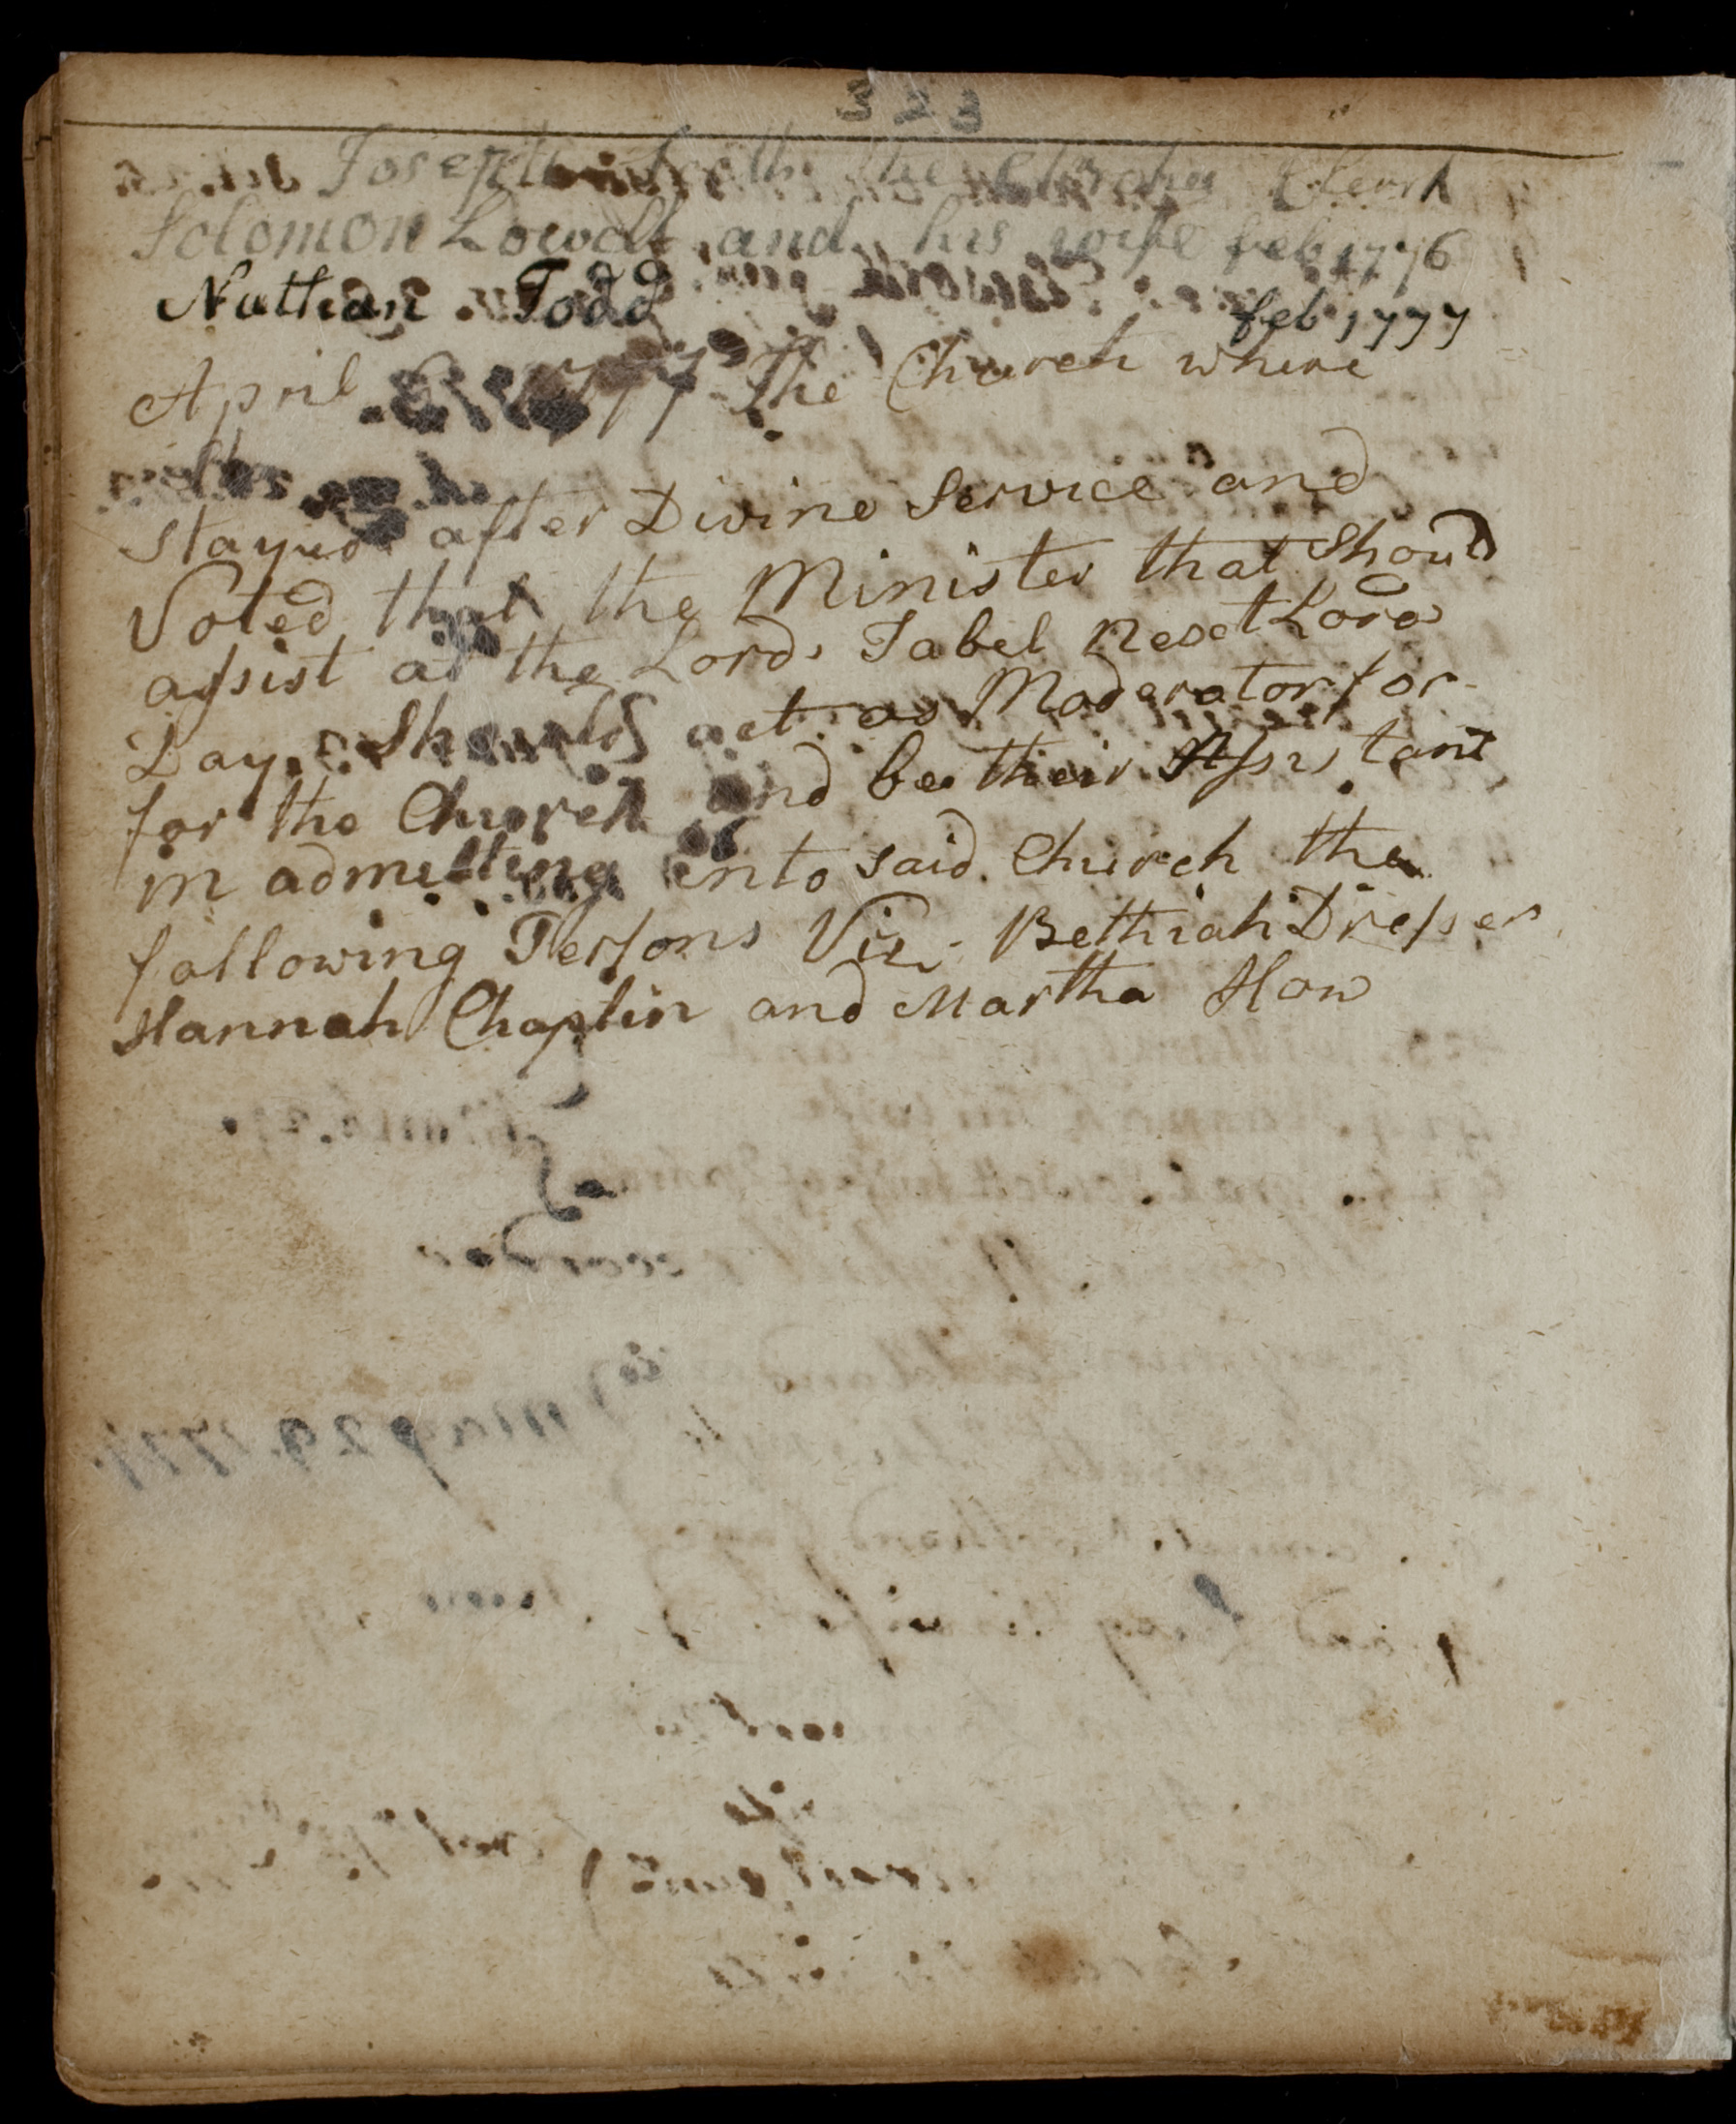 323
Joseph the Clerk
Solomon Lowell and his wife feb 1776
Nathan Todd feb 1777
April 1777 The Church where
stayed after Divine Service and
Voted that the Minister that Shoud
assist at the Lords Tabel Next Lords
Day Should act as Moderator for
for the Church and be their Assistant
in admitting into said Church the
following Persons Viz. Bethiah Dresser
Hannah Chaplin and Martha How